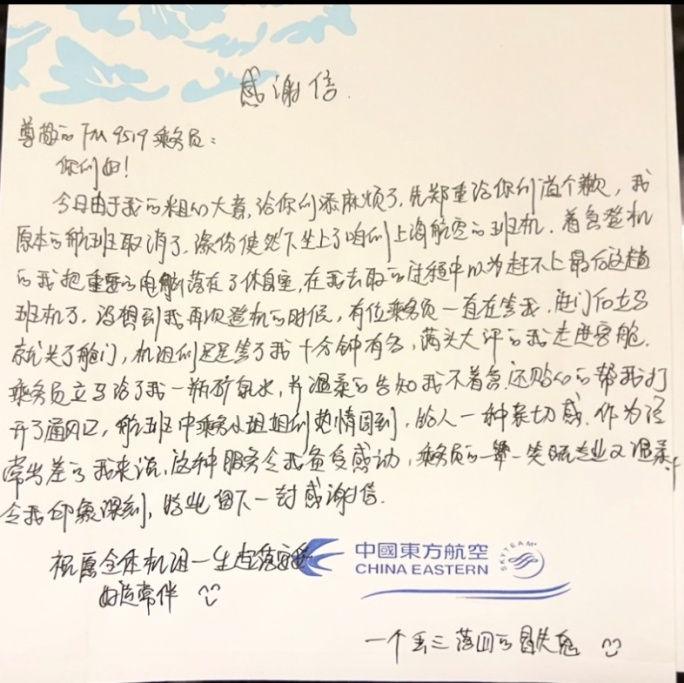 感谢信.
尊敬的FM9519乘务员：
你们好！
今日由于我的粗心大意，给你们添麻烦了，先郑重给你们道个歉，我
原本的航班取消了，缘份使然下坐上了咱们上海航空的班机。着急登机
的我把重要的电脑落在了休息室，在我去取的过程中以为赶不上最后这趟
班机了，没想到我再次登机的时候，有位乘务员一直在等我，进门后立马
就关了舱门，机组们足足等了我十分钟有多，满头大汗的我走进客舱.
乘务员立马给了我一瓶矿泉水，并温柔的告知我不着急，还贴心的帮我打
开了通风口，航班中乘务小姐姐们热情周到，给人一种亲切感，作为经
常出差的我来说，这种服务令我备受感动，乘务员的一颦一笑既专业又温柔，
令我印象深刻，特此留下一封感谢信.
祝愿全体机组一生起落安
好运常伴
中國東方航空
CHINA EASTERN
SKYTEAM
一个丢三落四的冒失鬼